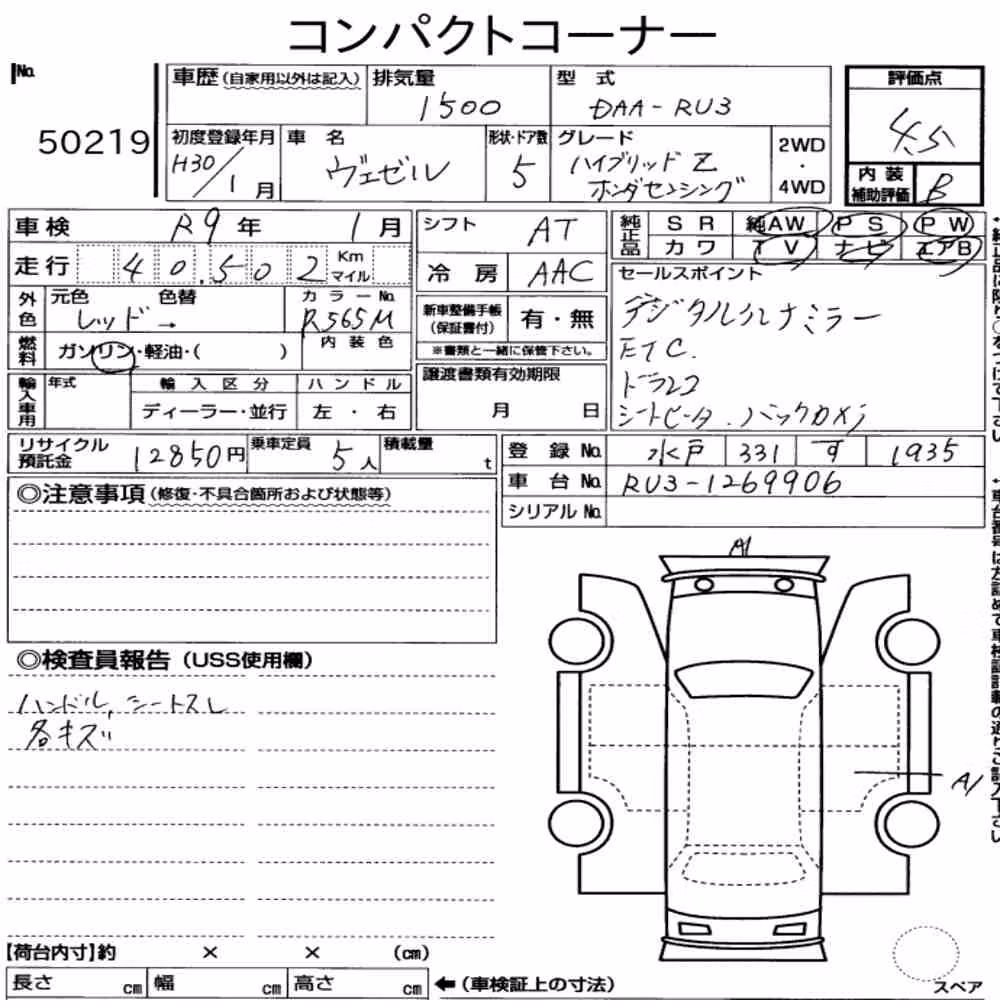 コンパクトコーナー
No.
50219
車歴(自家用以外は記入)
排気量
1500
型 式
DAA-RU3
評価点
4.5
初度登録年月
H30/1月
車 名
ヴェゼル
形状・ドア数
5
グレード
ハイブリッド Z
ホンダセンシング
2WD
・
4WD
内 装
補助評価
B
車検 R9年 1月
シフト AT
純正品
S R 純AW P S P W
カワ T V ナビ エアB
走行 4 0.5 0 2 Km
マイル
冷 房 AAC
セールスポイント
デジタルインナミラー
ETC.
ドラレコ
シートヒータ.バックカメラ
外色
元色 色替
レッド→
カラーNo.
R565M
内装色
新車整備手帳
(保証書付)
有・無
※書類と一緒に保管下さい。
燃料
ガソリン・軽油・( )
輸入車用
年式
輸 入 区 分
ディーラー・並行
ハ ン ド ル
左 ・ 右
譲渡書類有効期限
月 日
リサイクル
預託金
12850円
乗車定員 5人
積載量 t
登 録 No. 水戸 331 す 1935
車 台 No. RU3-1269906
シリアル No.
◎注意事項(修復・不具合箇所および状態等)
◎検査員報告(USS使用欄)
ハンドル,シートスレ
各キズ
A1
A1
【荷台内寸】約 × × (cm)
長さ cm 幅 cm 高さ cm
←(車検証上の寸法)
スペア